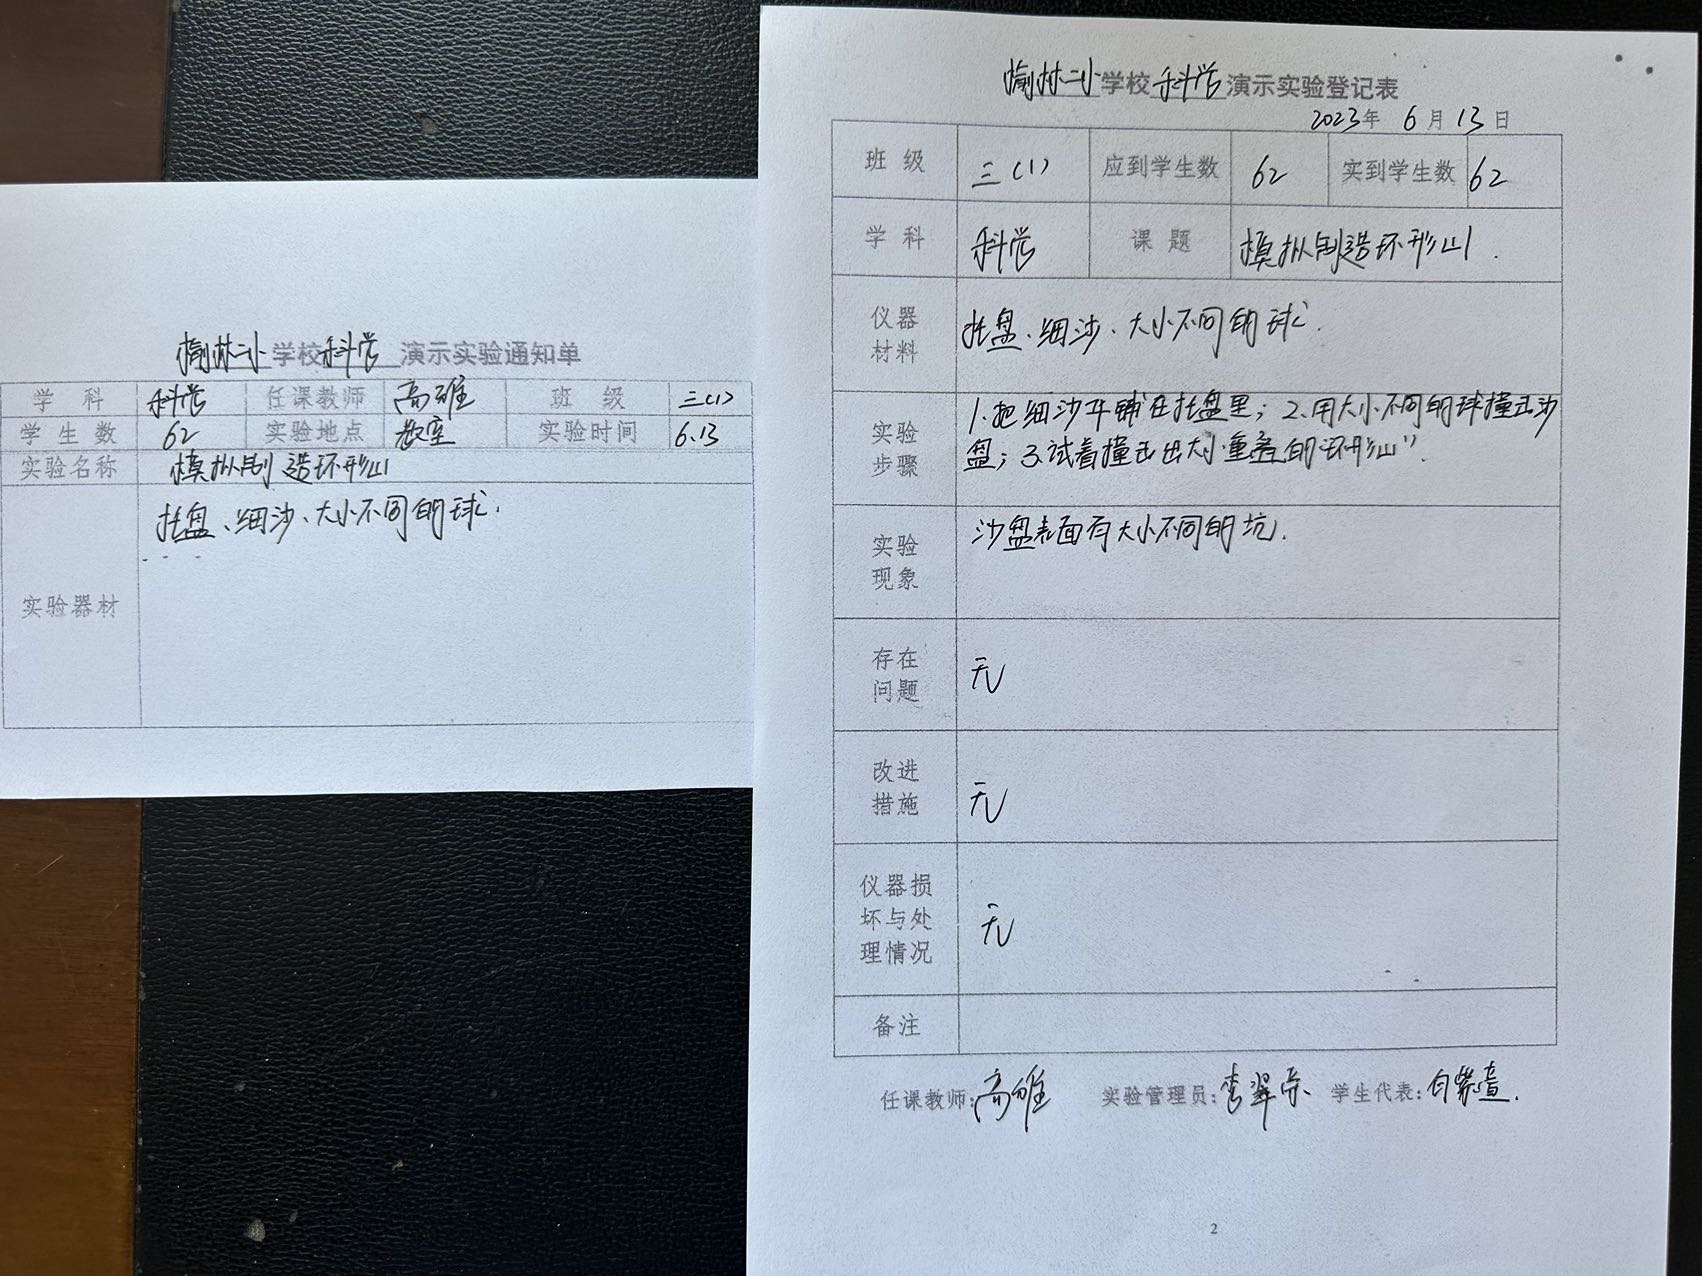 榆林二小学校科学演示实验通知单
学科 科学 任课教师 高雅 班级 三(1)
学生数 62 实验地点 教室 实验时间 6.13
实验名称 模拟制造环形山
实验器材 托盘、细沙、大小不同的球.
榆林二小学校科学演示实验登记表
2023年 6月13日
班级 三(1) 应到学生数 62 实到学生数 62
学科 科学 课题 模拟制造环形山.
仪器材料 托盘、细沙、大小不同的球.
实验步骤 1.把细沙平铺在托盘里；2.用大小不同的球撞击沙
盘；3.试着撞击出大小重叠的“环形山”.
实验现象 沙盘表面有大小不同的坑.
存在问题 无
改进措施 无
仪器损坏与处理情况 无
备注
任课教师:高雅 实验管理员:李翠 学生代表:白紫
2